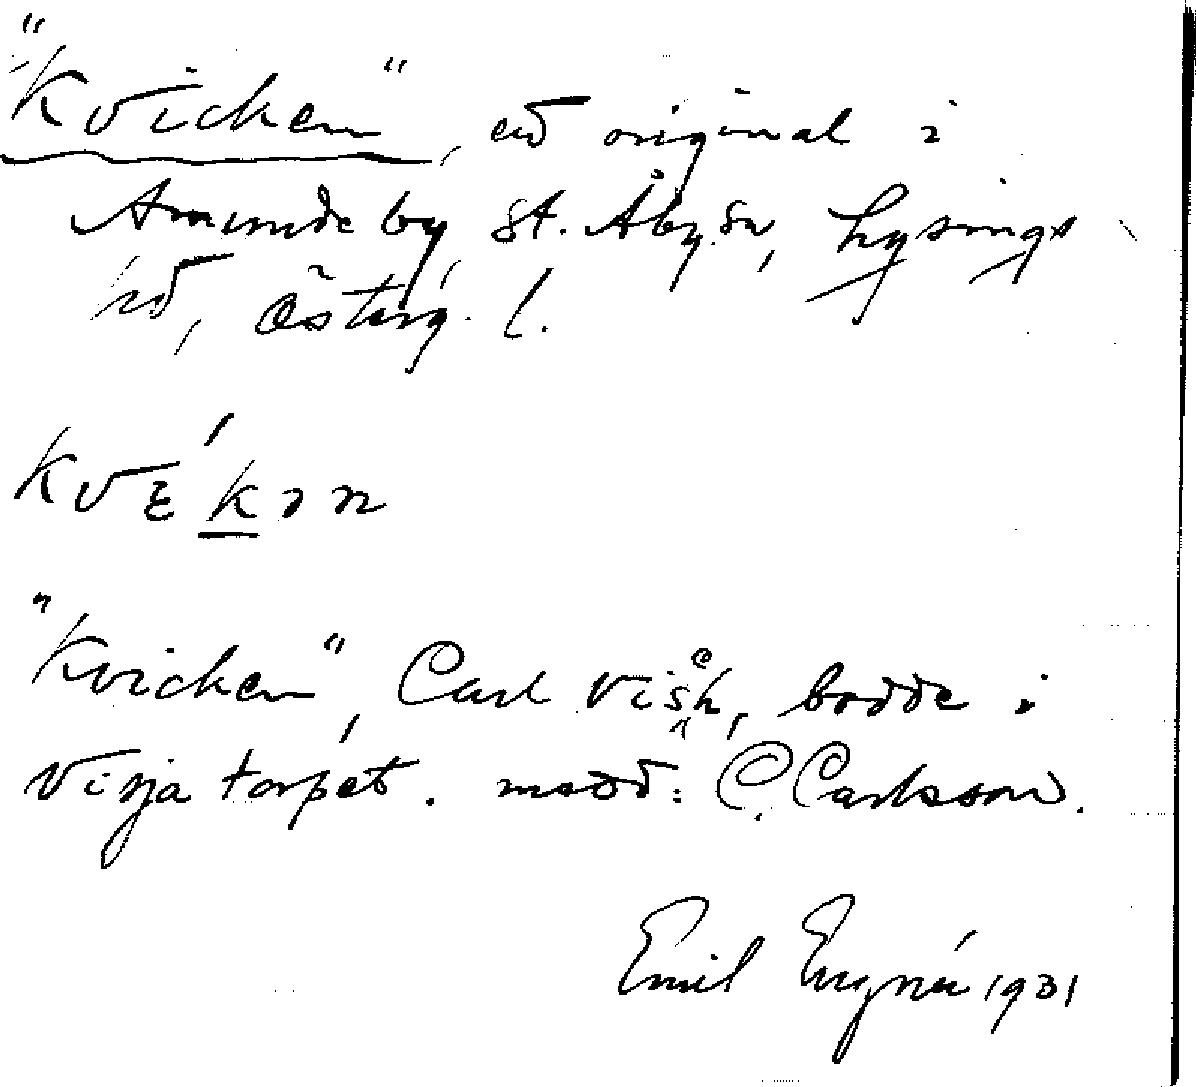 "Kvicken", ett original i
Amundeby, St. Åby sn, Lysings
hd, Österg. l.
kvɛ́kɘn
"Kvicken", Carl Visk, bodde i
torpet. medd: C. Carlsson.
Emil 1931